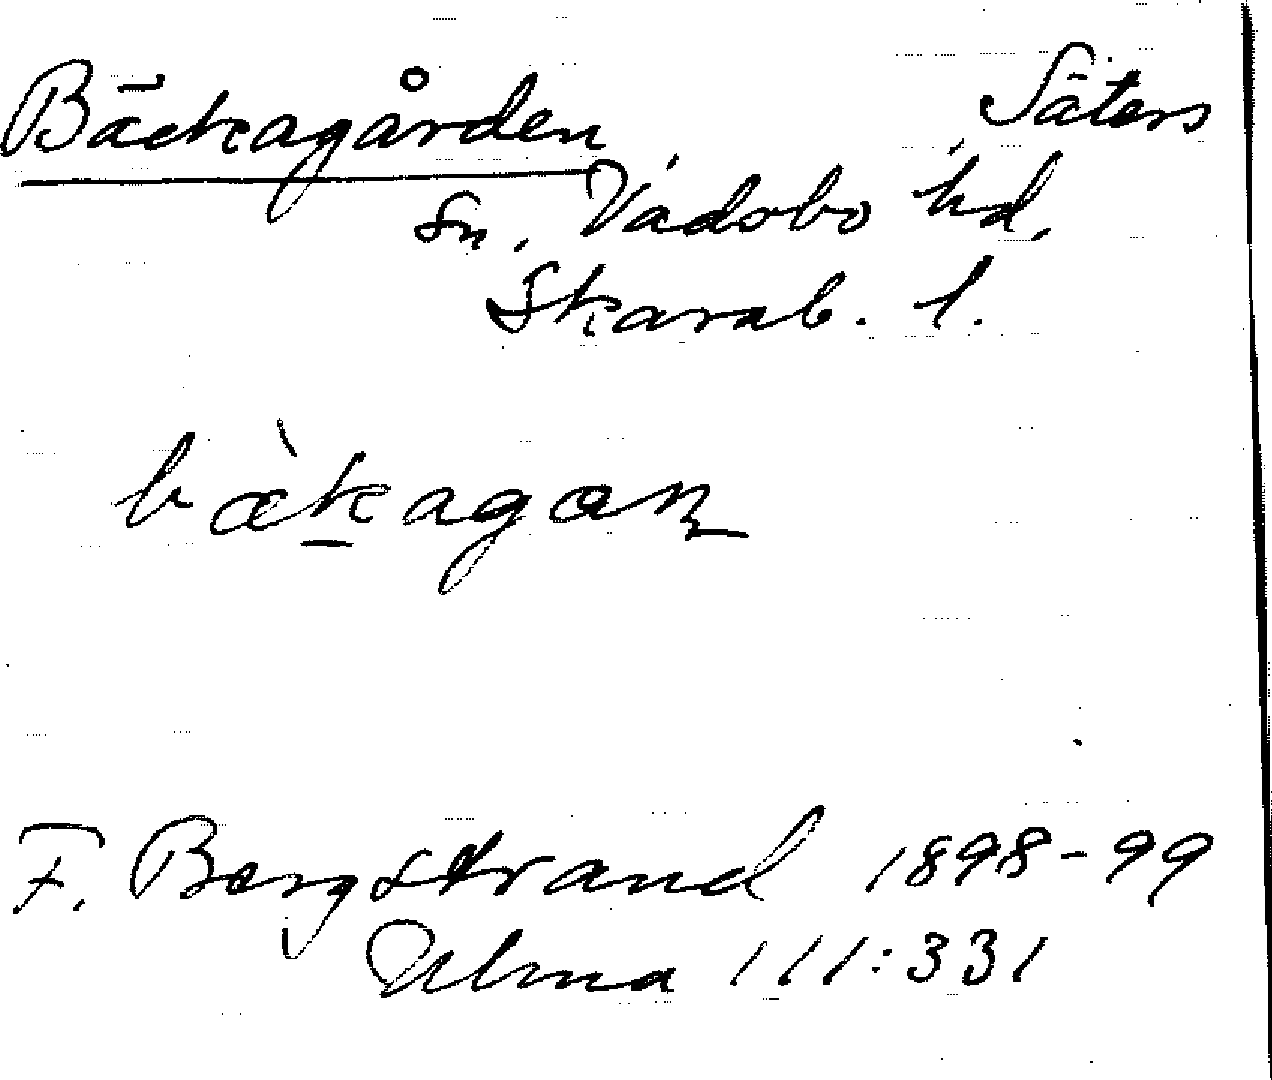 Bäckagården Säters
sn. Vadsbo hd.
Skarab. l.
bæ̀k̠agaɳ
F. Bergstrand 1898-99
Ulma 111:331